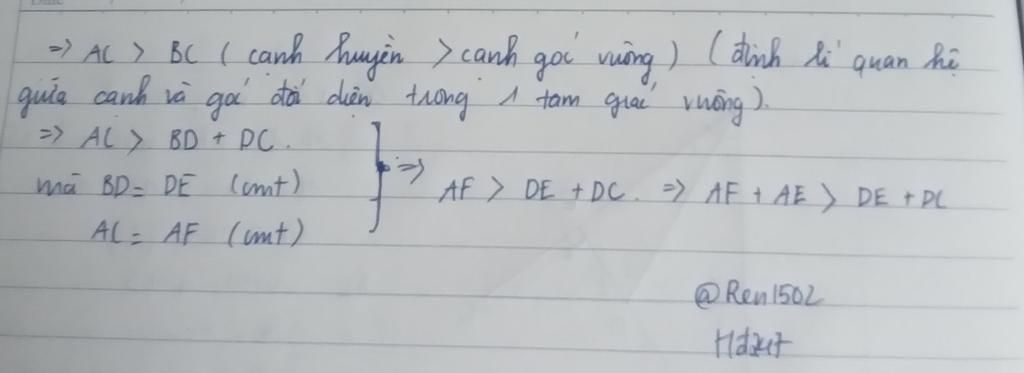 => AC > BC ( cạnh huyền > cạnh góc vuông ) ( định lí quan hệ
giữa cạnh và góc đối diện trong 1 tam giác vuông ).
=> AC > BD + DC .
mà BD = DE (cmt)
=> AF > DE + DC. => AF + AE > DE + DC
AC = AF (cmt)
@Ren1502